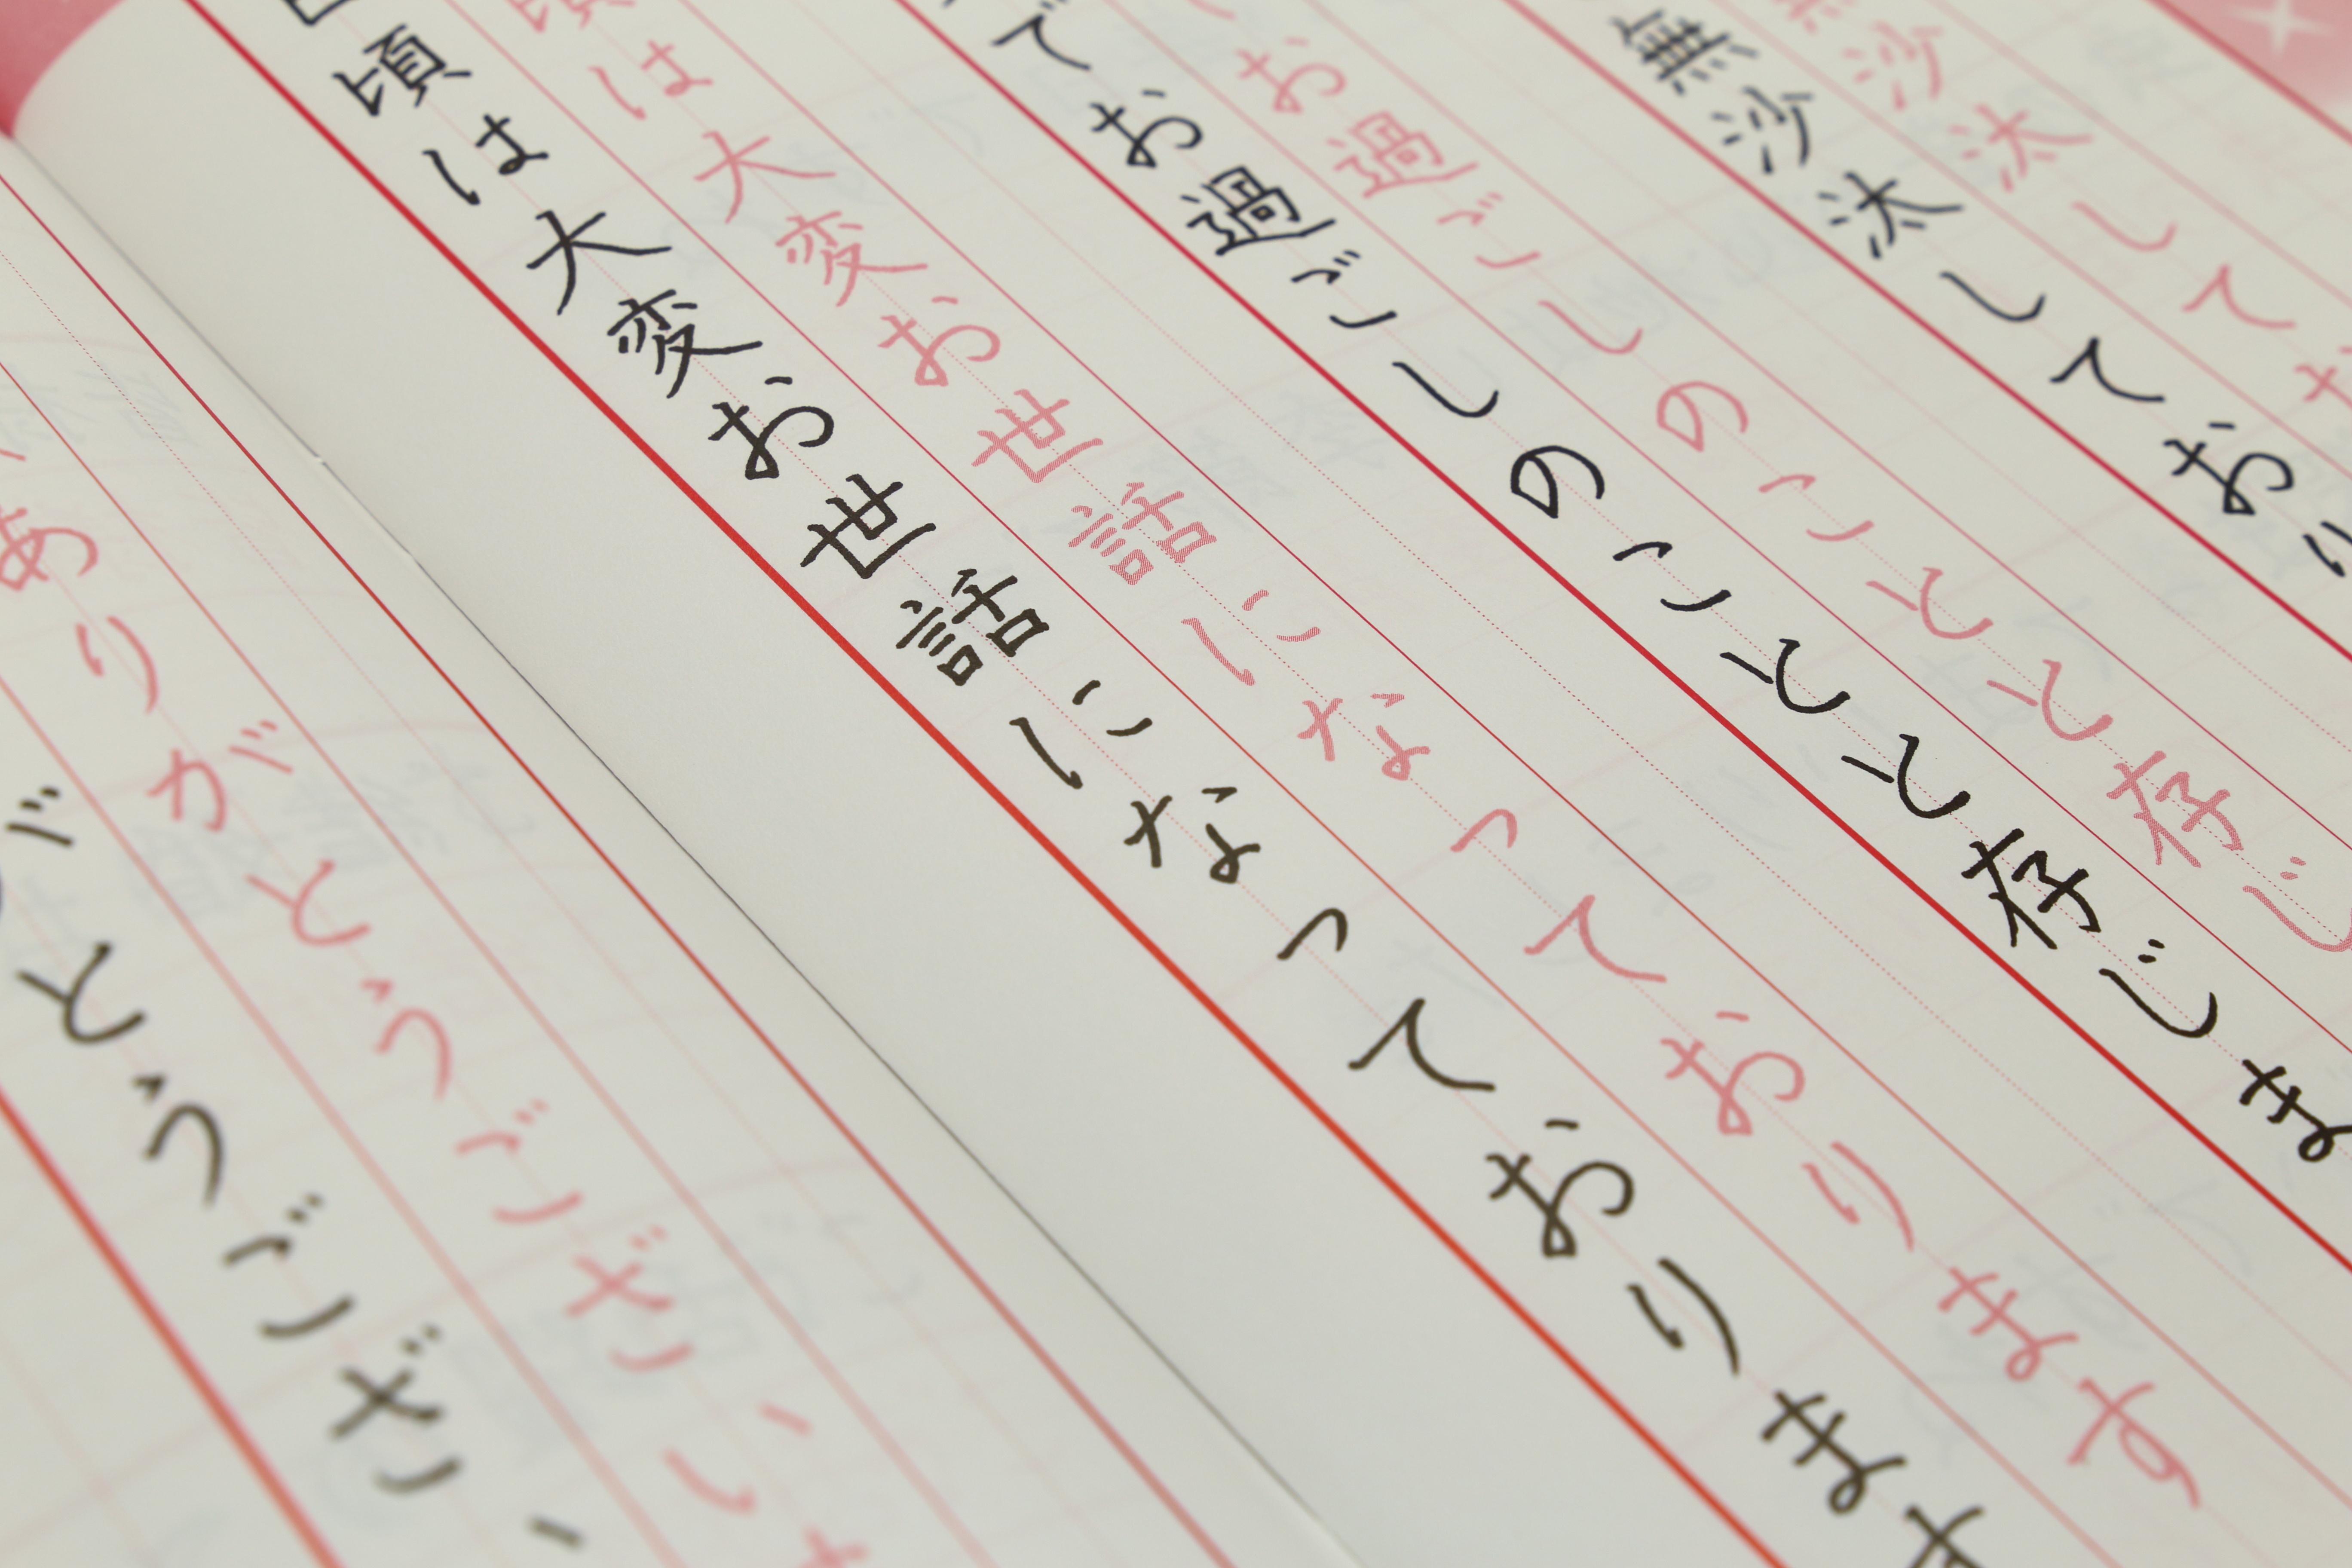 無沙汰してお
無沙汰しており
お過ごしのことと存じ
でお過ごしのことと存じま
頃は大変お世話になっております
頃は大変お世話になっております
ありがとうございま
とうござい